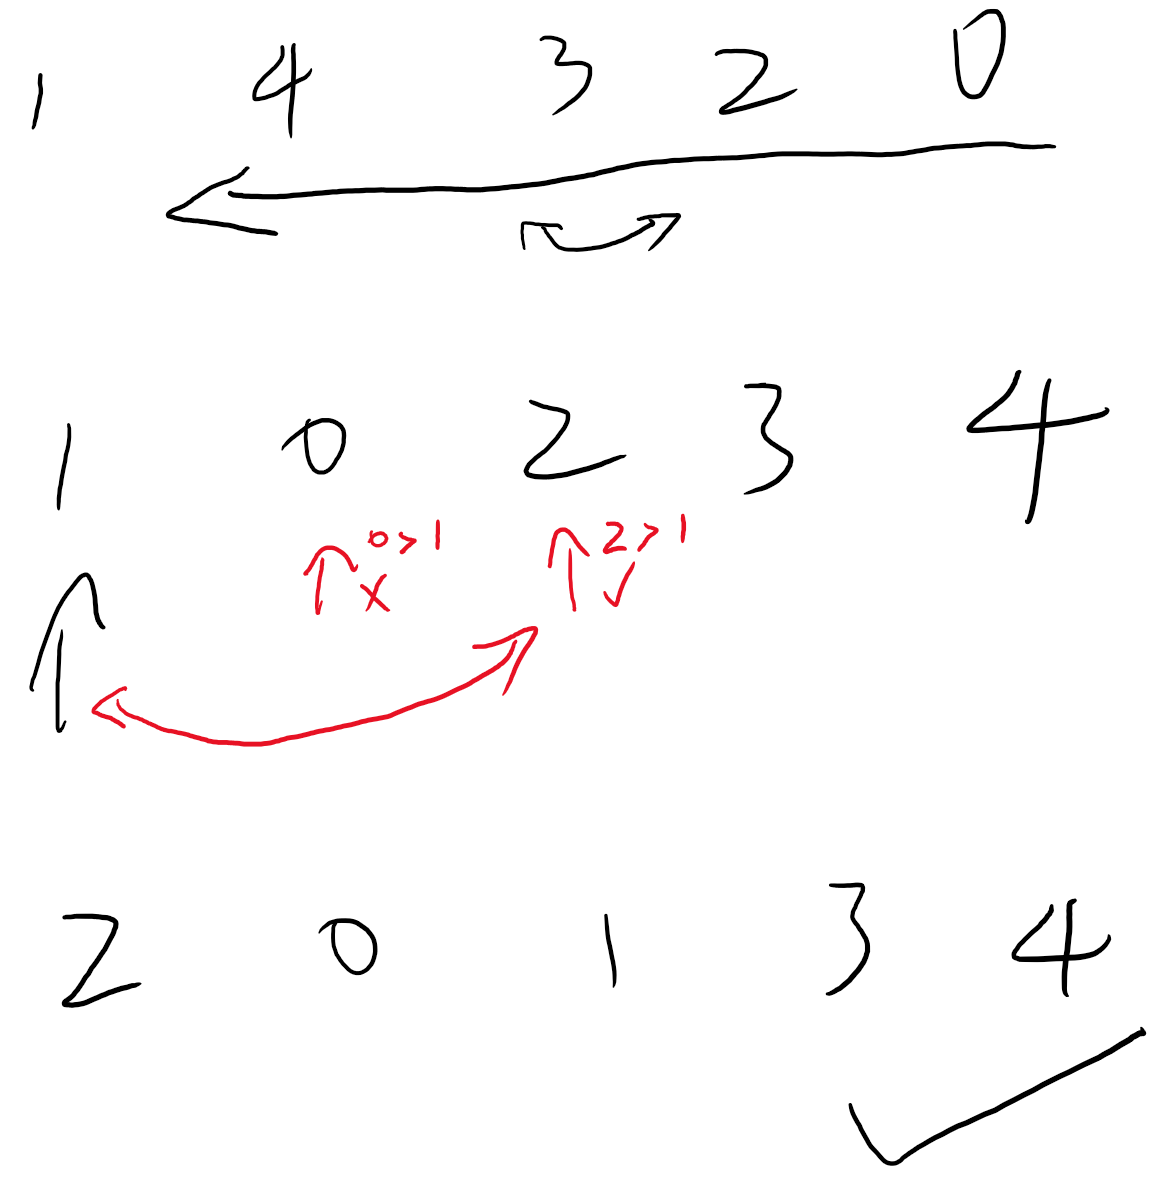 1 4 3 2 0
1 0 2 3 4
0>1 2>1
x ✓
2 0 1 3 4